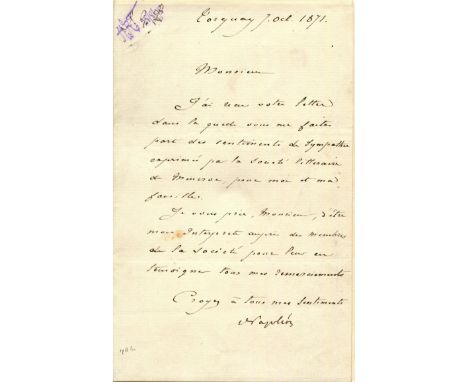 Torquay 7. Oct. 1871.
Monsieur
J'ai reçu votre lettre
dans laquelle vous me faites
part des sentiments de sympathie
exprimés par la Société littéraire
de pour moi et ma
famille.
Je vous prie, Monsieur, d'être
mon interprète auprès des membres
de la société pour leur en
témoigner tous mes remerciements
Croyez à tous mes sentiments
Napoléon